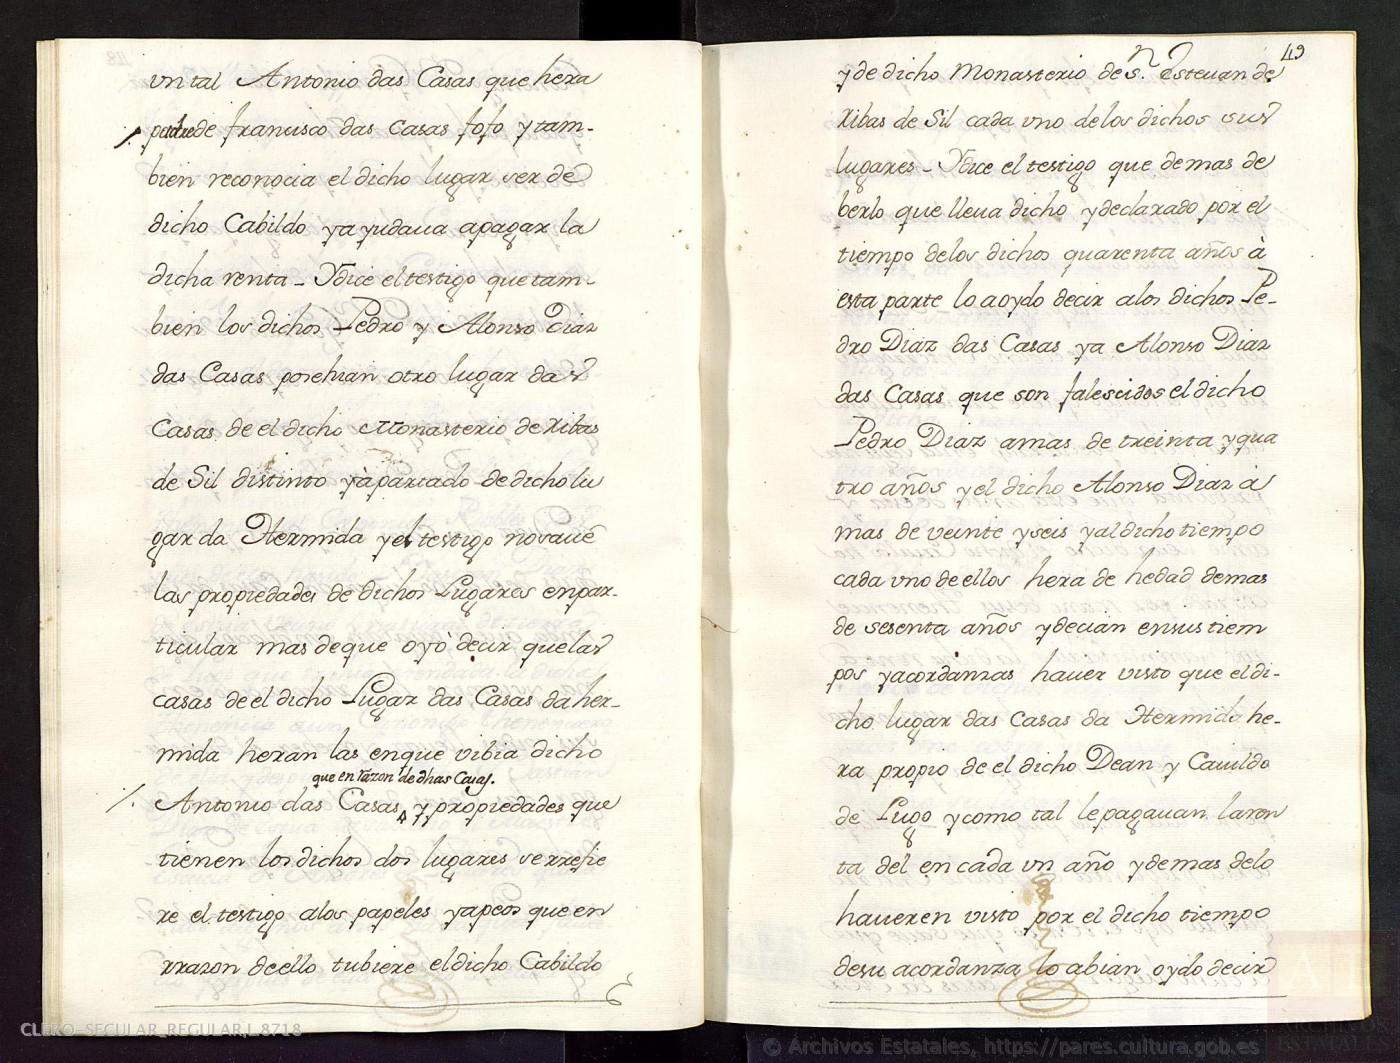 vn tal Antonio das Casas que hera
padre de francisco das Casas fofo y tam-
bien reconocia el dicho lugar ser de
dicho Cabildo ya yudaua apagar la
dicha renta - Ydice el testigo que tam-
bien los dichos Pedro y Alonso Diaz
das Casas posehian otro lugar das
Casas de el dicho Monasterio de Ribas
de Sil distinto yàpartado de dicho lu
gar da Hermida y el testigo no saue
las propiedades de dichos Lugares en par-
ticular mas de que oyò decir que las
casas de el dicho Lugar das Casas da her-
mida heran las enque vibia dicho
que en razon de dhas Casas.
Antonio das Casas, y propiedades que
tienen los dichos dos lugares se rrefie
re el testigo alos papeles yapeos que en
rrazon de ello tubiere el dicho Cabildo
49
y de dicho Monasterio de S.n Esteuan de
Ribas de Sil cada vno de los dichos sus
lugares - Ydice el testigo que demas de
berlo que lleua dicho y declarado por el
tiempo de los dichos quarenta años à
esta parte lo a oydo decir alos dichos Pe-
dro Diaz das Casas ya Alonso Diaz
das Casas que son falescidos el dicho
Pedro Diaz amas de treinta y qua
tro años y el dicho Alonso Diaz a
mas de veinte y seis y al dicho tiempo
cada vno de ellos hera de hedad demas
de sesenta años y decian ensus tiem
pos yacordanzas hauer visto que el di-
cho lugar das Casas da Hermida he-
ra propio de el dicho Dean y Cauildo
de Lugo y como tal le pagauan la ren
ta del en cada vn año y demas delo
hauer en visto por el dicho tiempo
desu acordanza lo abian oydo decir
CLERO-SECULAR_REGULAR,L.8718
© Archivos Estatales, https://pares.cultura.gob.es
AE
ARCHIVOS
ESTATALES